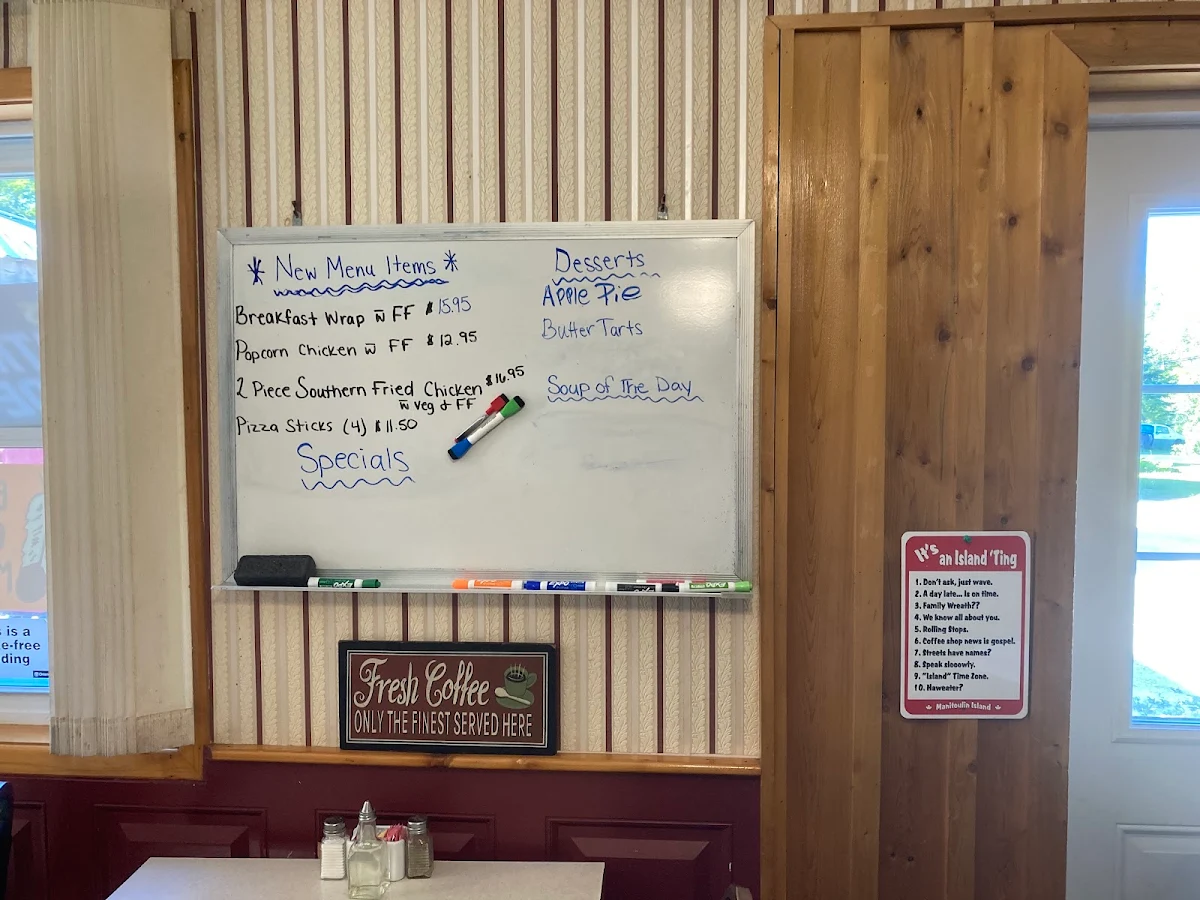 * New Menu Items *
Breakfast Wrap w̄ FF $15.95
Popcorn Chicken w̄ FF $12.95
2 Piece Southern Fried Chicken $16.95
w̄ Veg & FF
Pizza Sticks (4) $11.50
Specials
Desserts
Apple Pie
Butter Tarts
Soup of The Day
EXPO
Fresh Coffee
ONLY THE FINEST SERVED HERE
It's an Island 'Ting
1. Don't ask, just wave.
2. A day late... Is on time.
3. Family Wreath??
4. We know all about you.
5. Rolling Stops.
6. Coffee shop news is gospel.
7. Streets have names?
8. Speak slooowly.
9. "Island" Time Zone.
10. Naweater?
Manitoulin Island
s is a
e-free
ding